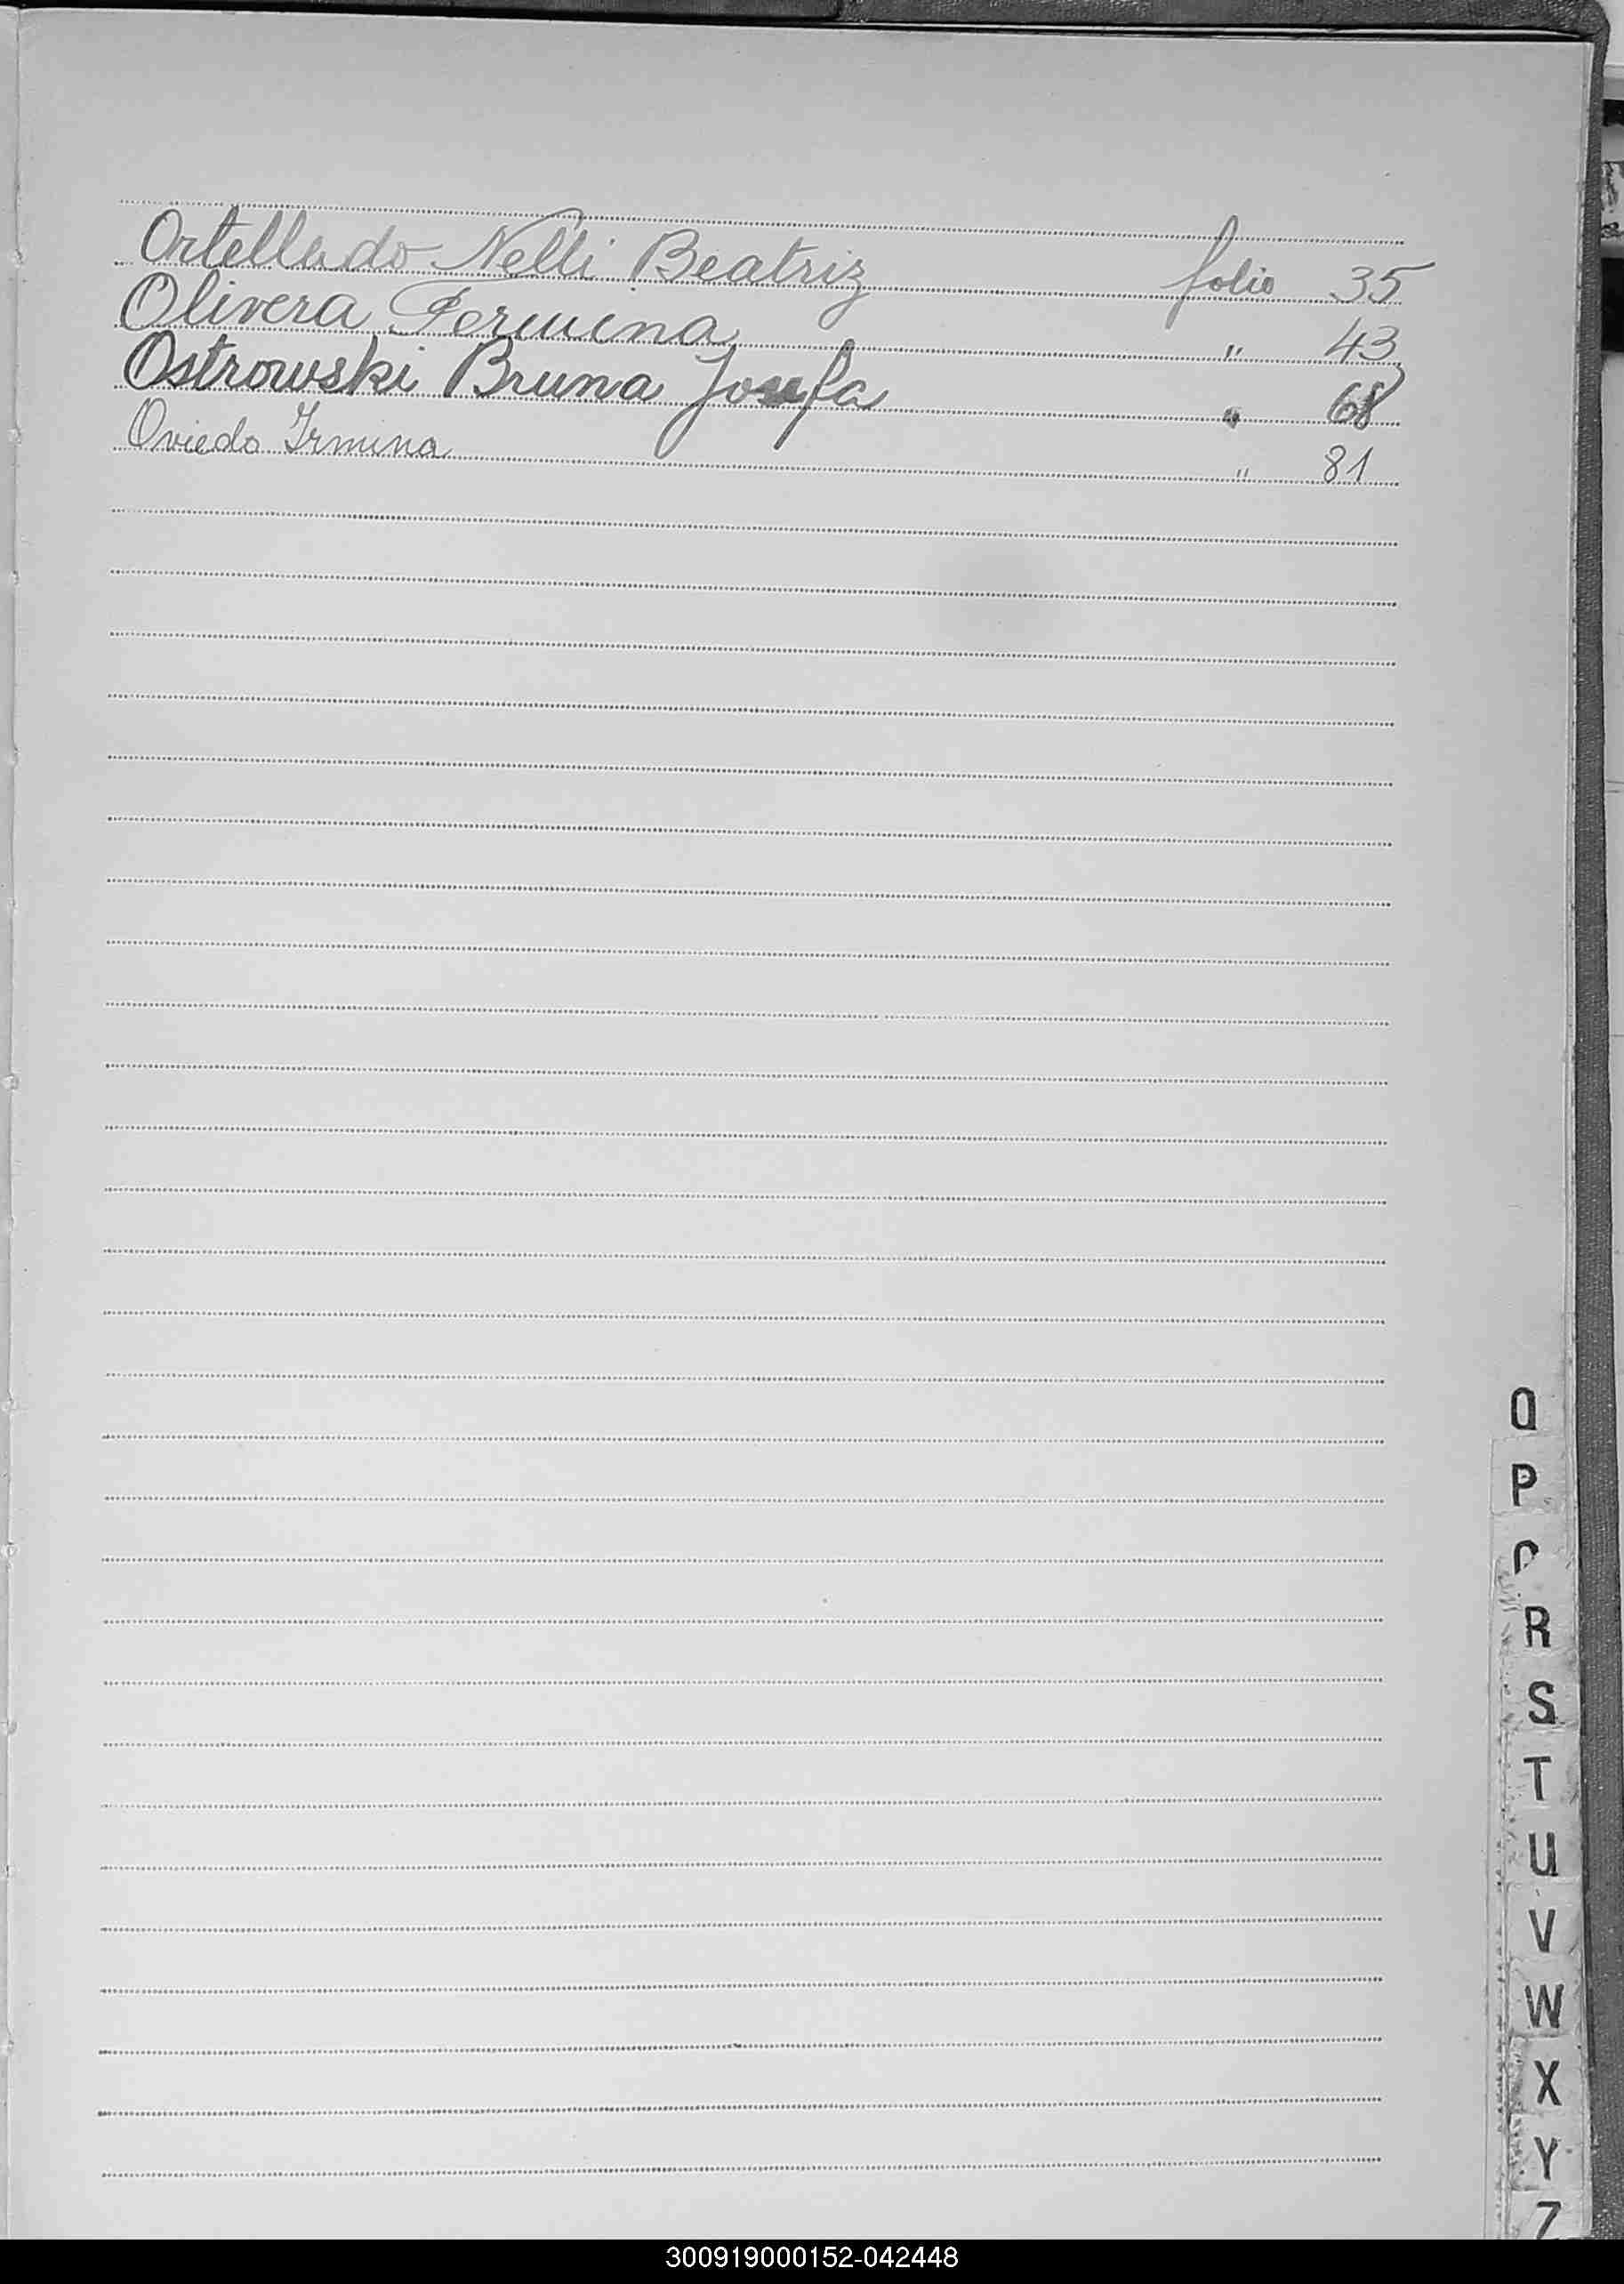 Ortellado Nelli Beatriz folio 35
Olivera Fermina " 43
Ostrowski Bruna Josefa " 68
Oviedo Irmina " 81
O
P
R
S
T
U
V
W
X
Y
Z
300919000152-042448